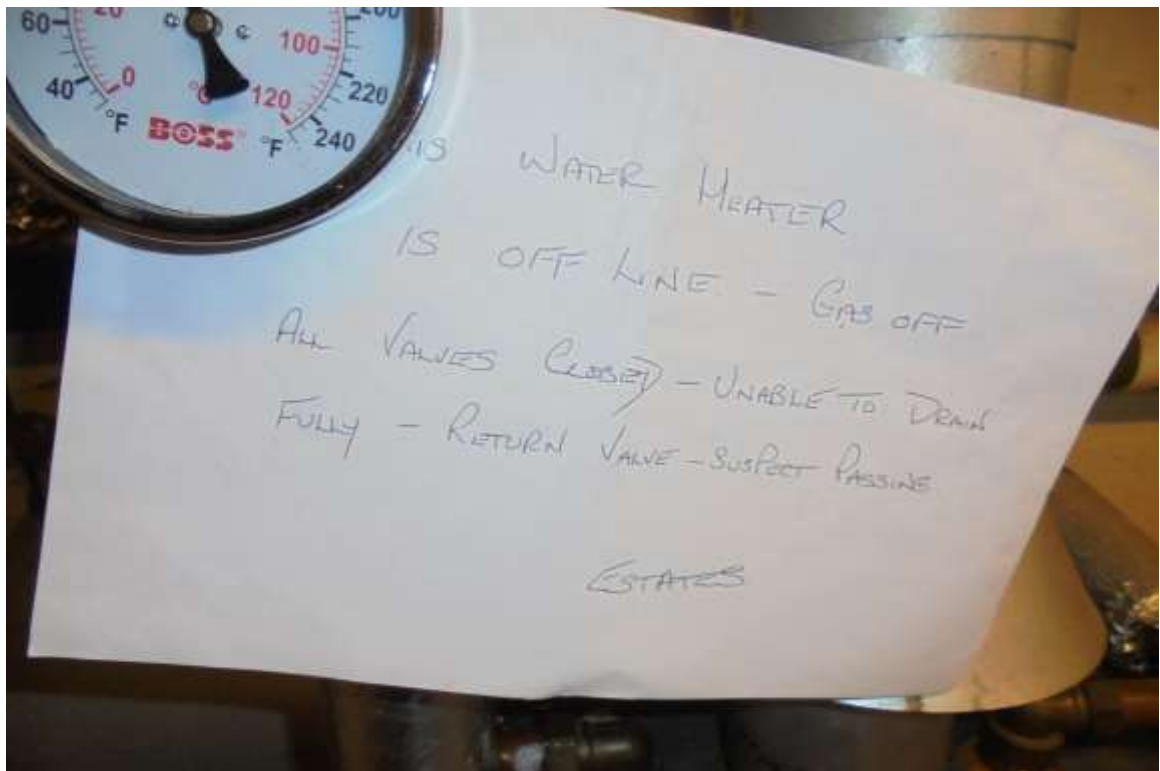 60 20 200
40 0 °C 100 220
°F BOSS °F 120 240
IS WATER HEATER
IS OFF LINE - GAS OFF
ALL VALVES CLOSED - UNABLE TO DRAIN
FULLY - RETURN VALVE - SUSPECT PASSING
ESTATES